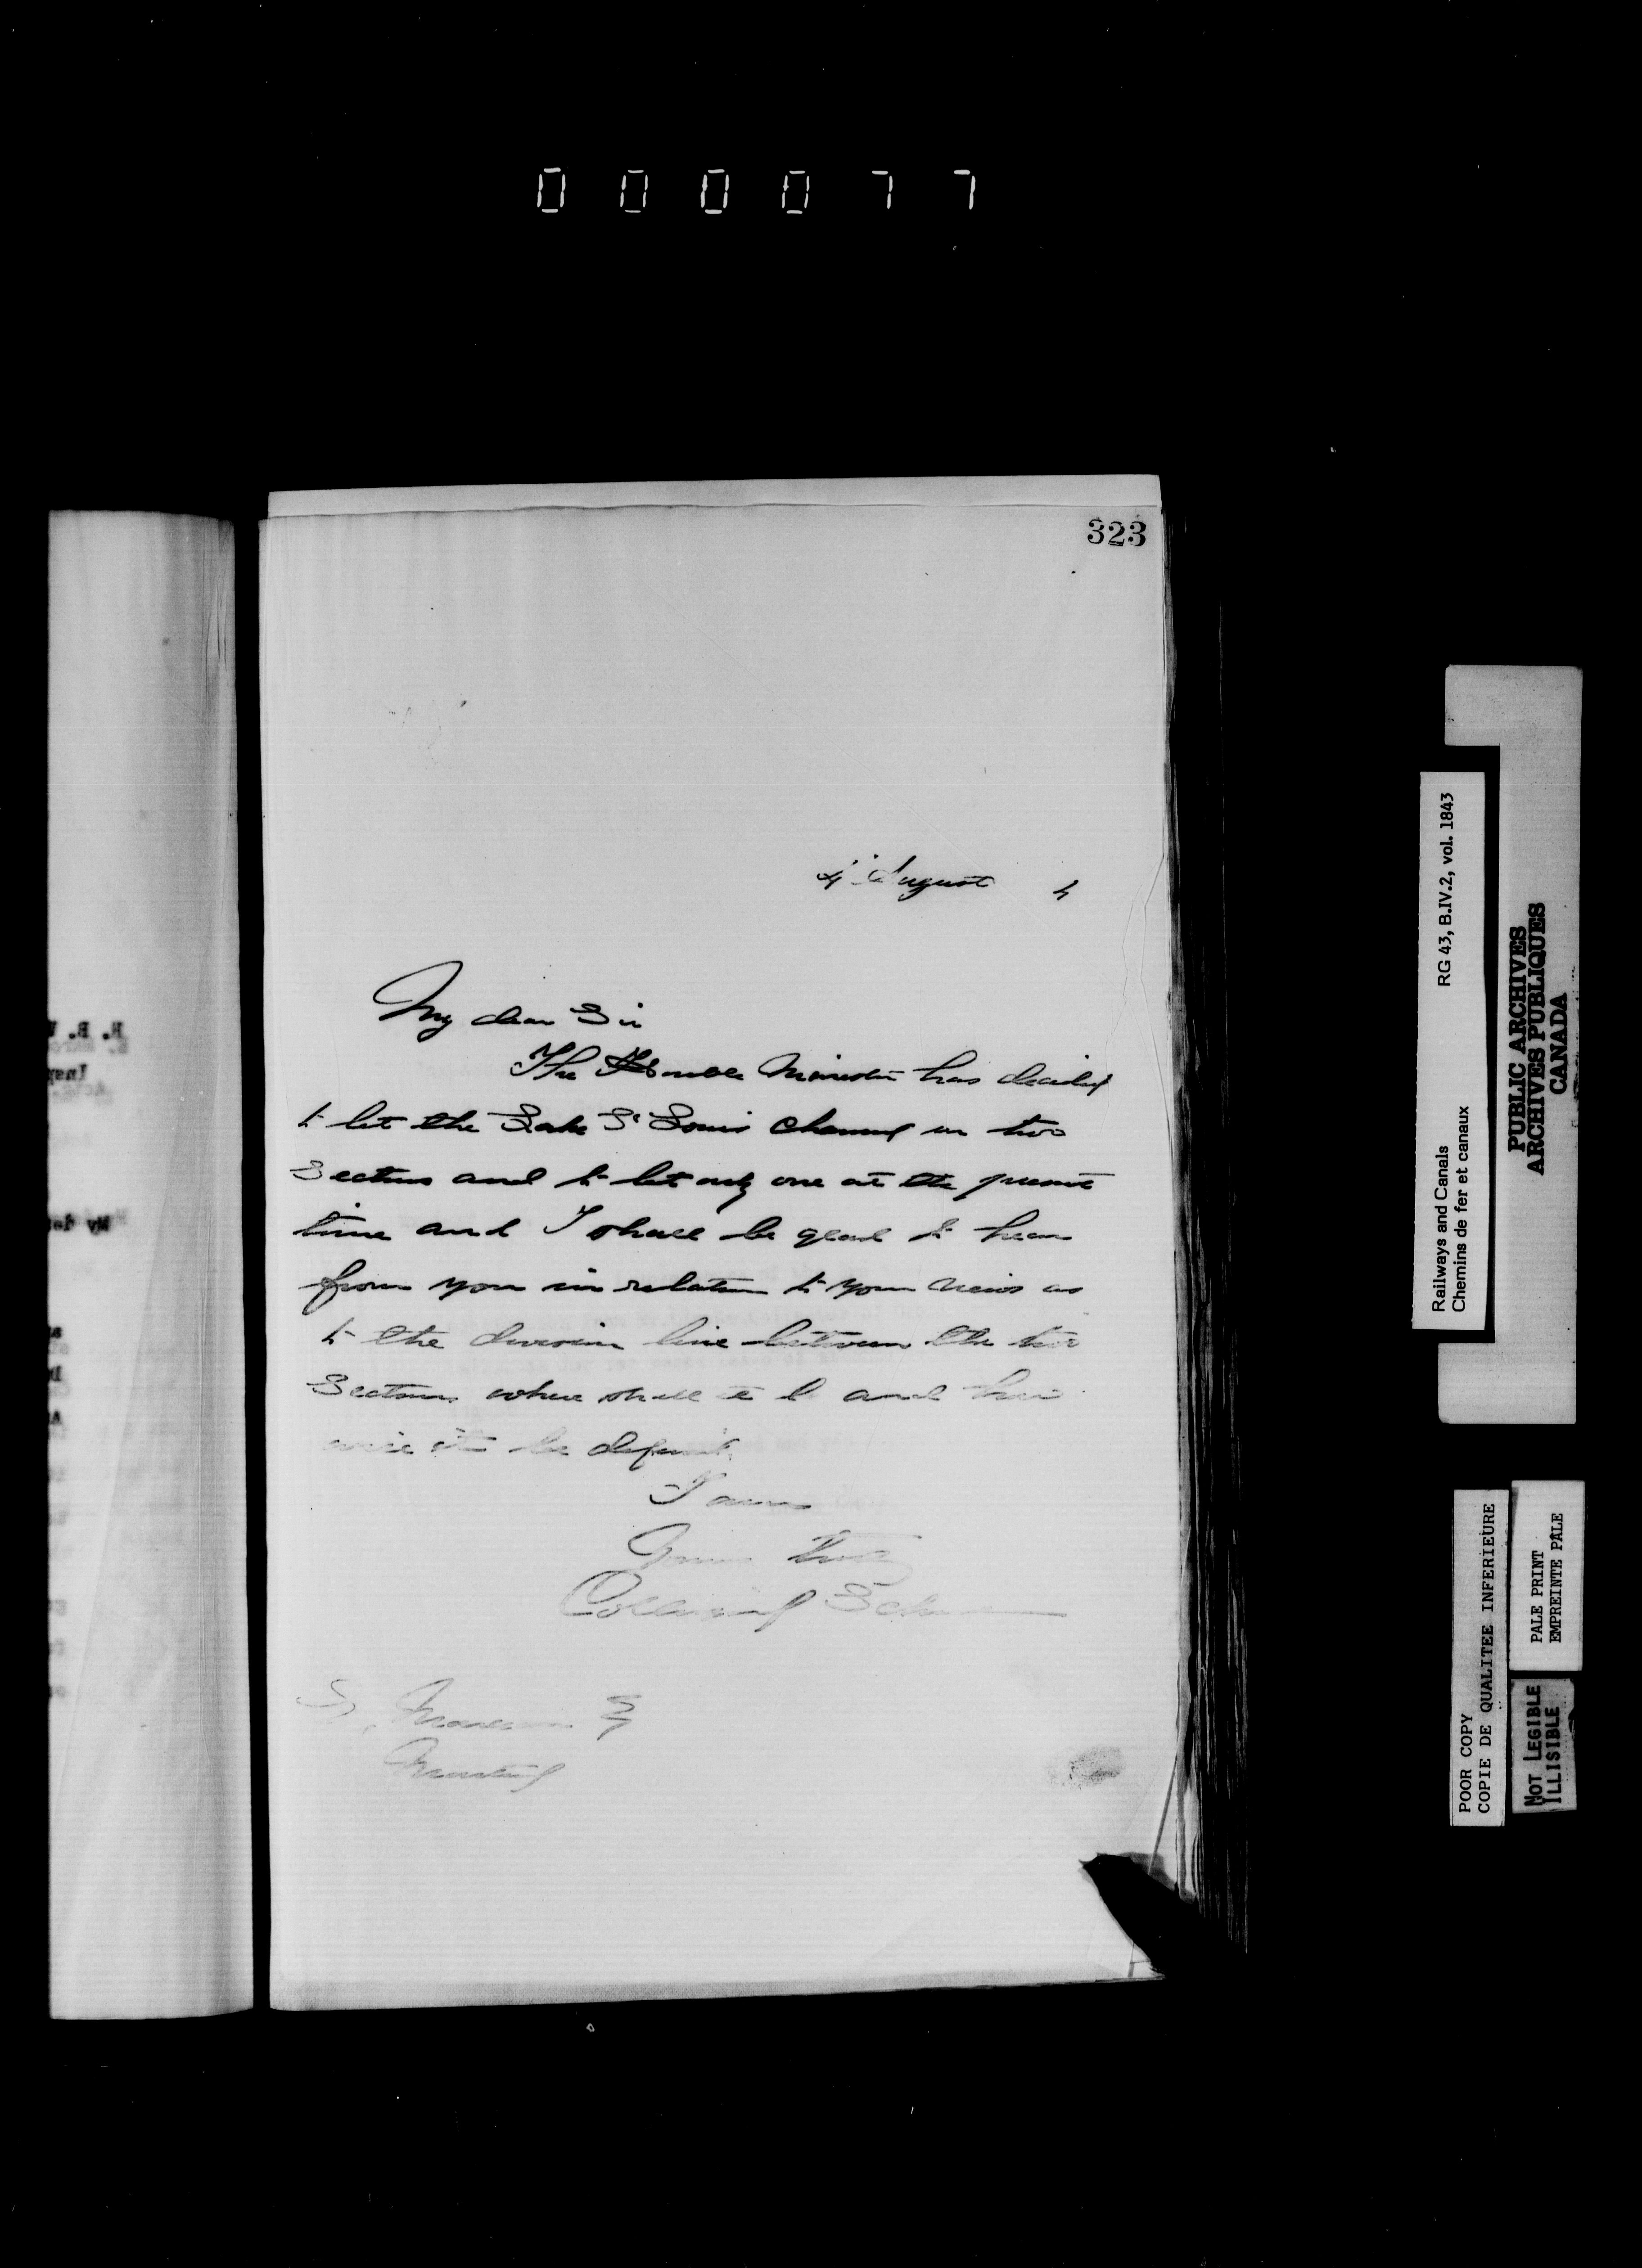 000077
323
4 August 4
My dear Sir
The Honble Minister has decided
to let the Lake St Louis Channel in two
Sections and to let only one at the present
time and I shall be glad to hear
from you in relation to your views as
to the division line between the two
Sections where shall it be and how
will it be defined.
I am
Yours truly
Collingwood Schreiber
Montreal
H. B.
My dea
Railways and Canals RG 43, B.IV.2, vol. 1843
Chemins de fer et canaux
PUBLIC ARCHIVES
ARCHIVES PUBLIQUES
CANADA
POOR COPY
COPIE DE QUALITEE INFERIEURE
PALE PRINT
EMPREINTE PÂLE
NOT LEGIBLE
ILLISIBLE